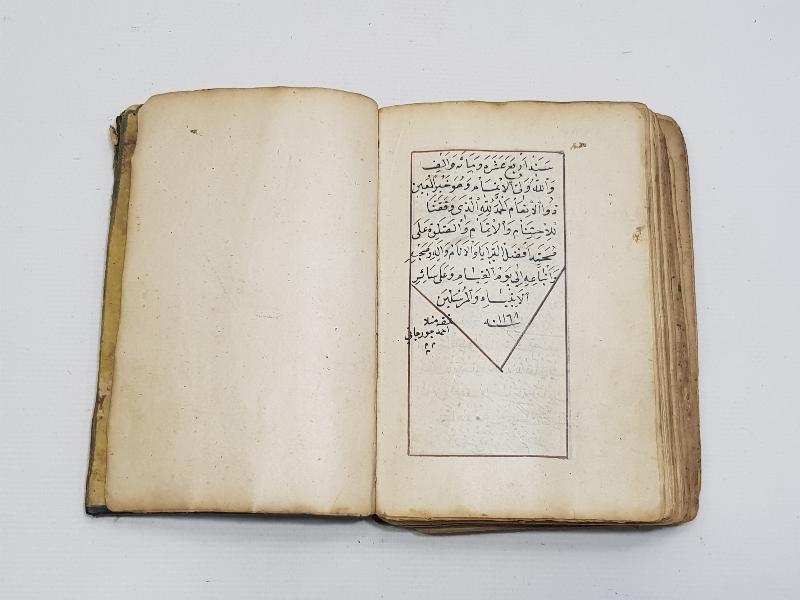 سنة اربع عشره ومائه والف
والله ولى الانعام وهو خير المعين
ذو الانعام الحمد لله الذى وفقنا
للاختتام والاتمام والصلوة على
محمد افضل البرايا والانام واله وصحبه
واتباعه الى يوم القيام وعلى سائر
الانبياء والمرسلين
سنه ١١٦٨
منلا
احمد جورجاني
م م